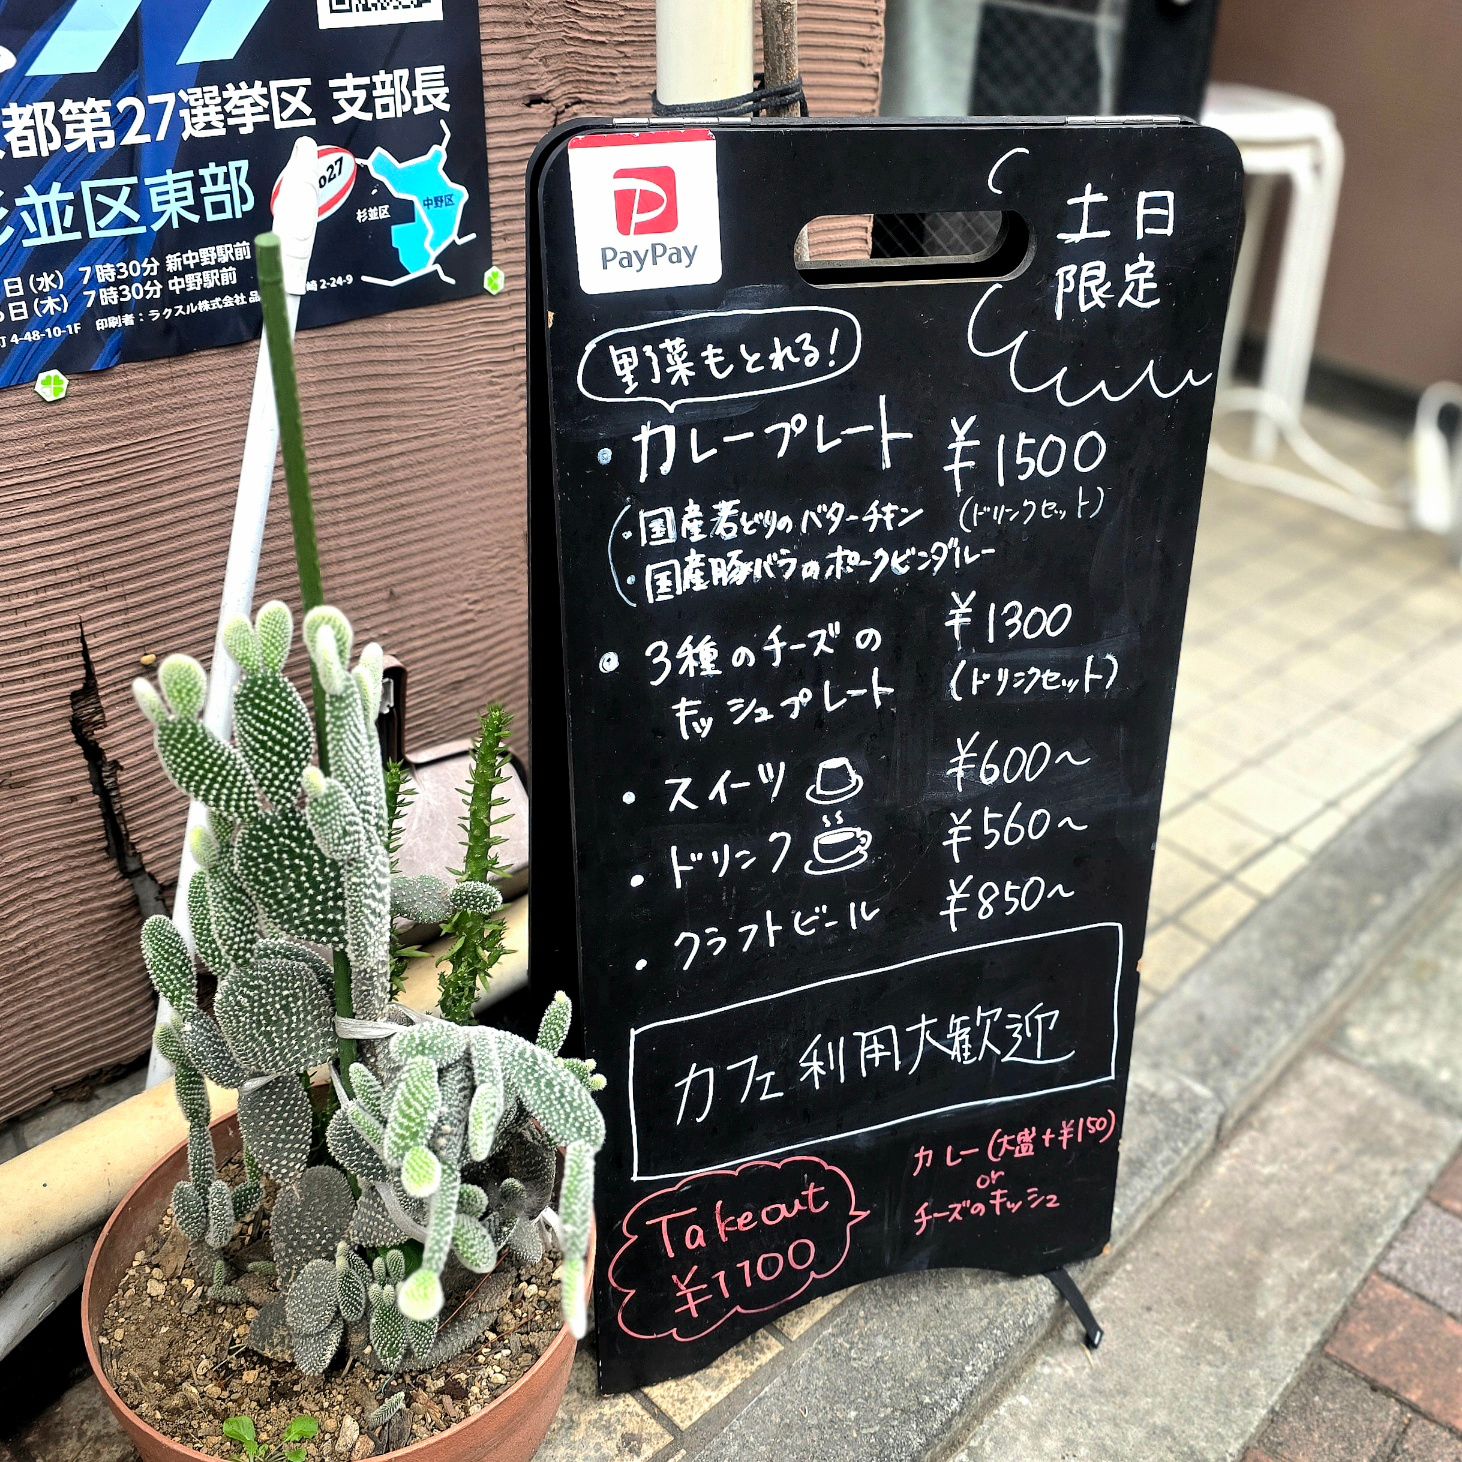 都第27選挙区 支部長
杉並区東部
o27
杉並区
中野区
日(水) 7時30分 新中野駅前
日(木) 7時30分 中野駅前
4-48-10-1F 印刷者:ラクスル株式会社
2-24-9
PayPay
土日
限定
野菜もとれる!
・カレープレート ¥1500
(ドリンクセット)
・国産若どりのバターチキン
・国産豚バラのポークビンダルー
・3種のチーズの ¥1300
キッシュプレート (ドリンクセット)
・スイーツ ¥600~
・ドリンク ¥560~
・クラフトビール ¥850~
カフェ利用大歓迎
Takeout
¥1100
カレー(大盛+¥150)
or
チーズのキッシュ